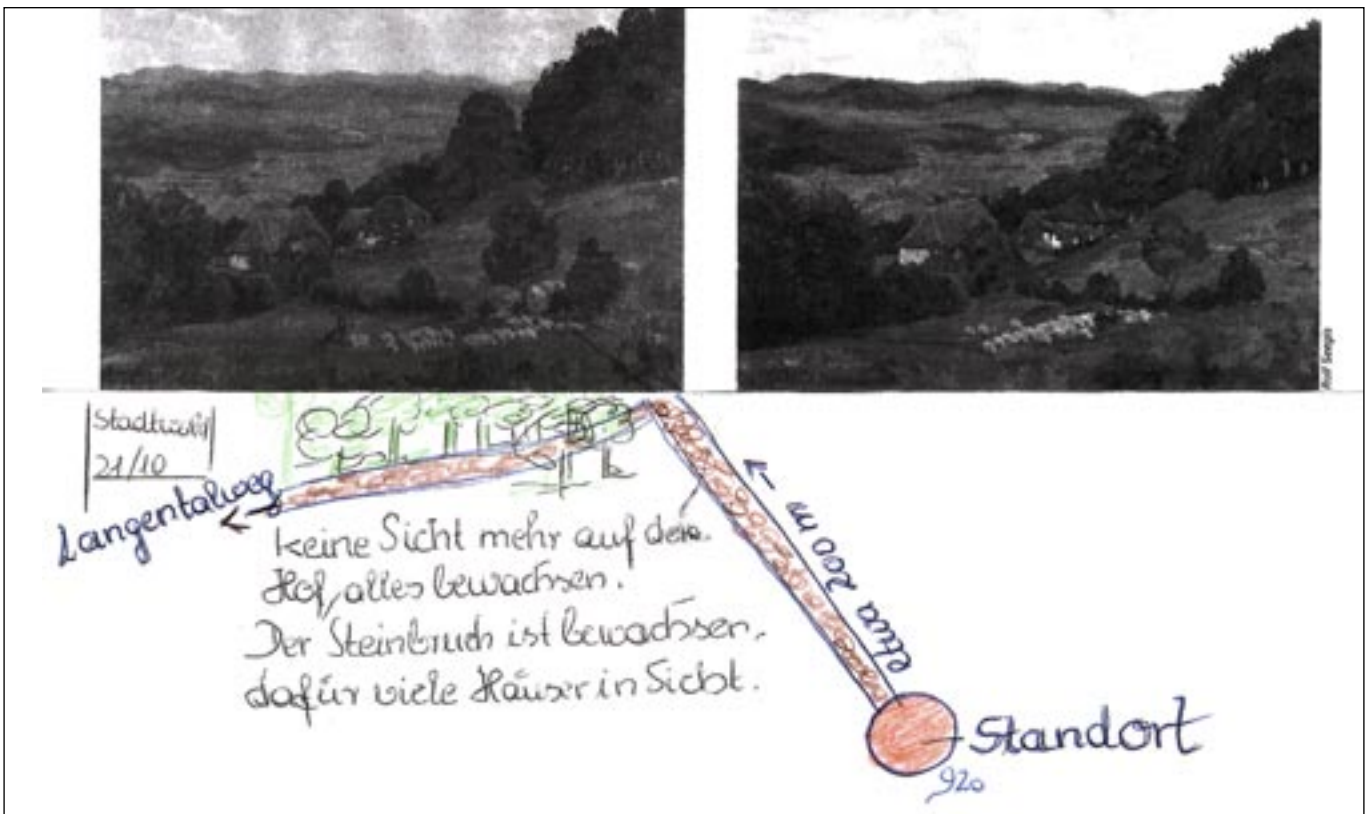 Rolf Seeger
Stadtwald
21/10
Langentalweg
keine Sicht mehr auf den
Hof, alles bewachsen.
Der Steinbruch ist bewachsen,
dafür viele Häuser in Sicht.
etwa 200 m
Standort
920